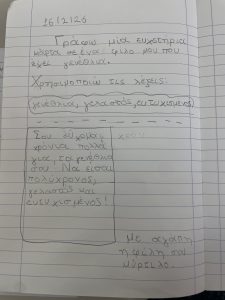 16/2/26
Γράφω μία ευχετήρια
κάρτα σε ένα φίλο μου που
έχει γενέθλια.
Χρησιμοποιώ τις λέξεις:
γενέθλια, γελαστός, ευτυχισμένος
Σου εύχομαι
χρόνια πολλά
για τα γενέθλια
σου. Να είσαι
πολύχρονος,
γελαστός και
ευτυχισμένος!
Με αγάπη
η φίλη σου